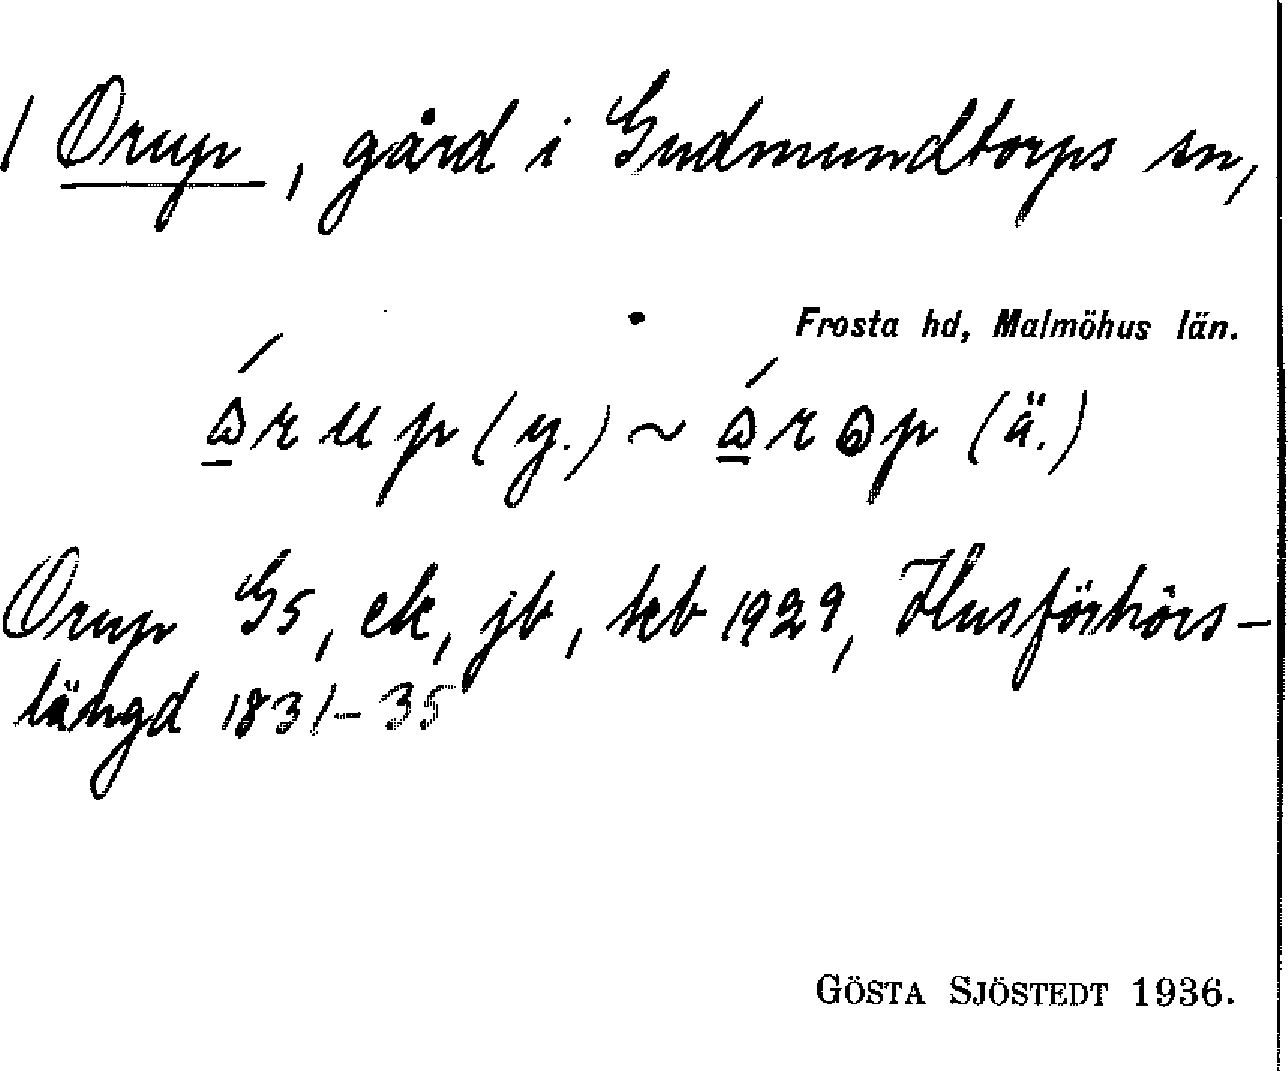 1 Orup, gård i Gudmundtorps sn,
Frosta hd, Malmöhus län.
(y.) ~ (ä.)
Orup GS, ek, jb, kb 1929, Husförhörs-
längd 1831-35
GÖSTA SJÖSTEDT 1936.